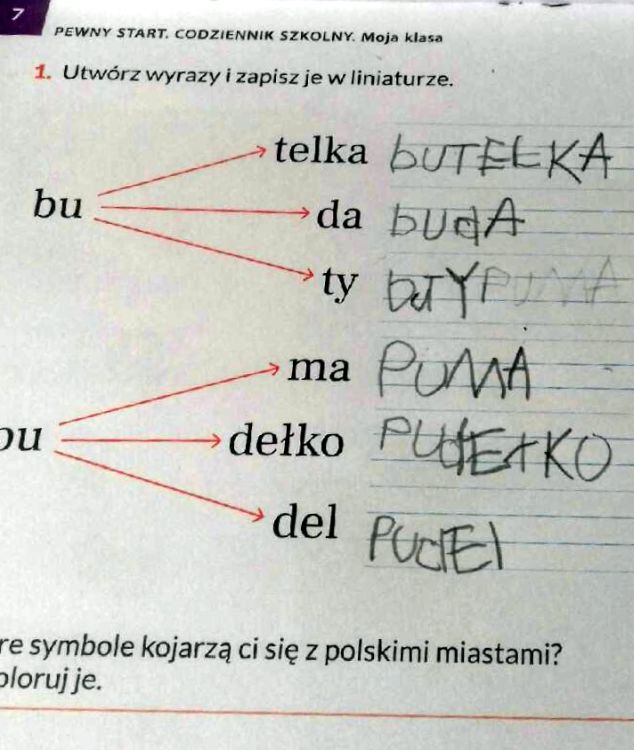 7
PEWNY START. CODZIENNIK SZKOLNY. Moja klasa
1. Utwórz wyrazy i zapisz je w liniaturze.
telka bUTEŁKA
bu
da bUdA
ty bUTY PUMA
ma PUMA
dełko PUdEŁKO
del PUdEl
re symbole kojarzą ci się z polskimi miastami?
oloruj je.